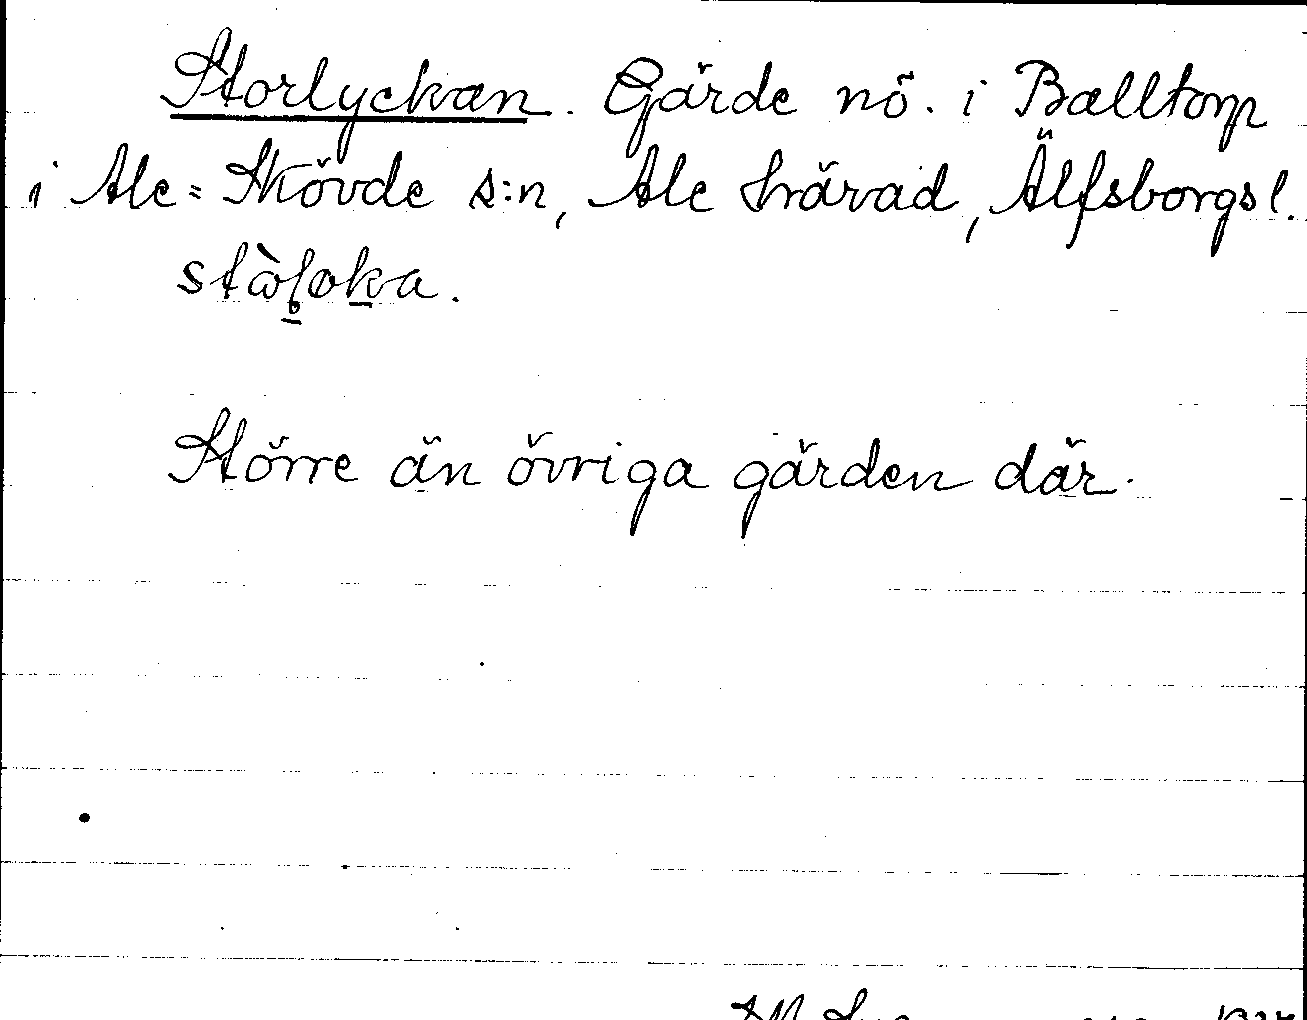 Storlyckan. Gärde nö. i Balltorp
i Ale=Skövde s:n, Ale härad, Älfsborgs l.
Större än övriga gärden där.